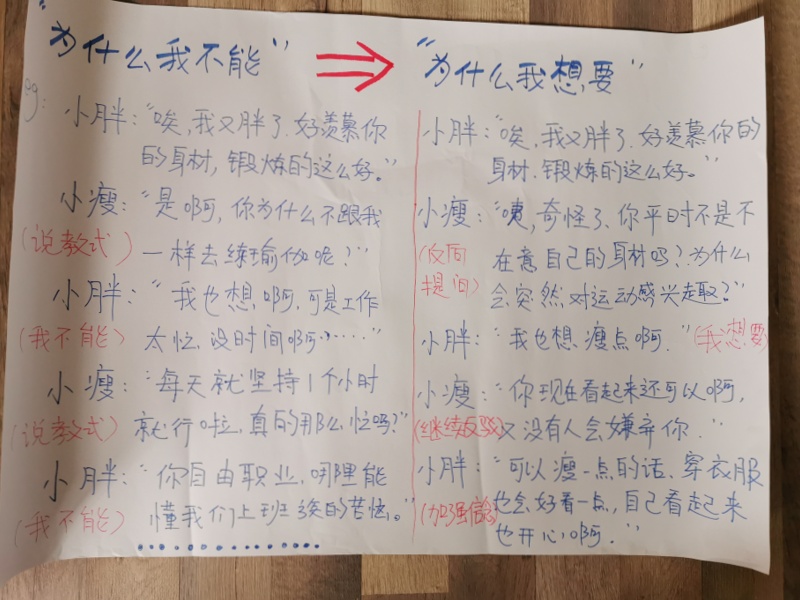 "为什么我不能"
eg: 小胖:"唉,我又胖了.好羡慕你
的身材,锻炼的这么好。"
小瘦:"是啊,你为什么不跟我
(说教式) 一样去练瑜伽呢?"
小胖:"我也想啊,可是工作
(我不能) 太忙,没时间啊……"
小瘦:"每天就坚持1个小时
(说教式) 就行啦,真的那么忙吗?"
小胖:"你自由职业,哪里能
(我不能) 懂我们上班族的苦恼。"
"为什么我想要"
小胖:"唉,我又胖了.好羡慕你的
身材.锻炼的这么好。"
小瘦:"咦,奇怪了、你平时不是不
(反向 在意自己的身材吗?为什么
提问) 会突然对运动感兴趣?"
小胖:"我也想瘦点啊."(我想要)
小瘦:"你现在看起来还可以啊,
(继续反驳) 又没有人会嫌弃你."
小胖:"可以瘦一点的话、穿衣服
(加强信念) 也会好看一点,自己看起来
也开心啊."